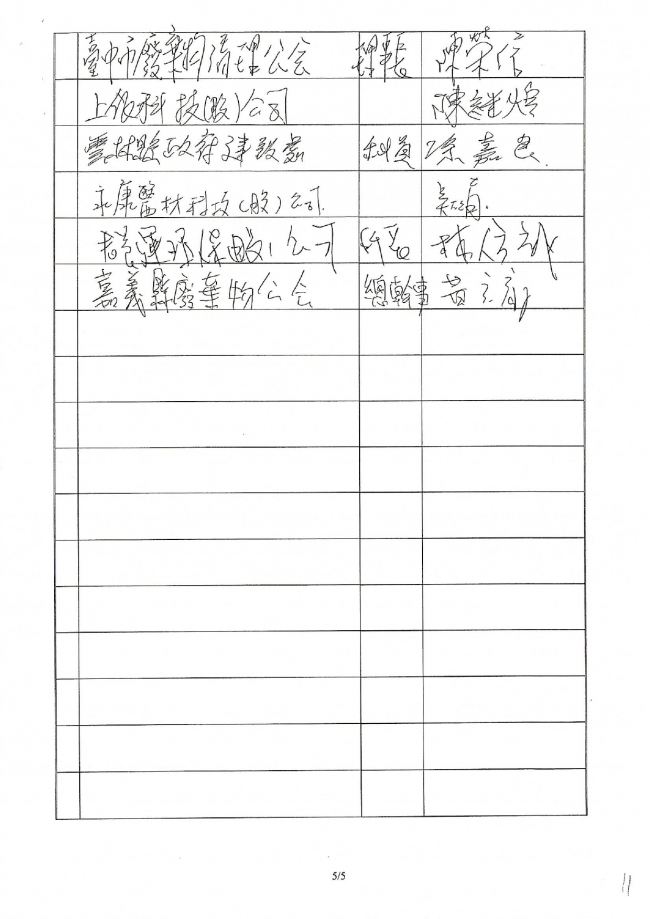 臺中市廢棄物清理公会 理事長 陳榮信
上依科技(股)公司 陳
雲林縣政府建設處 科員 徐嘉良
永康醫材科技(股)公司. 吳
運環保(股)公司 林信
嘉義縣廢棄物公会 總幹事 黃
5/5
11